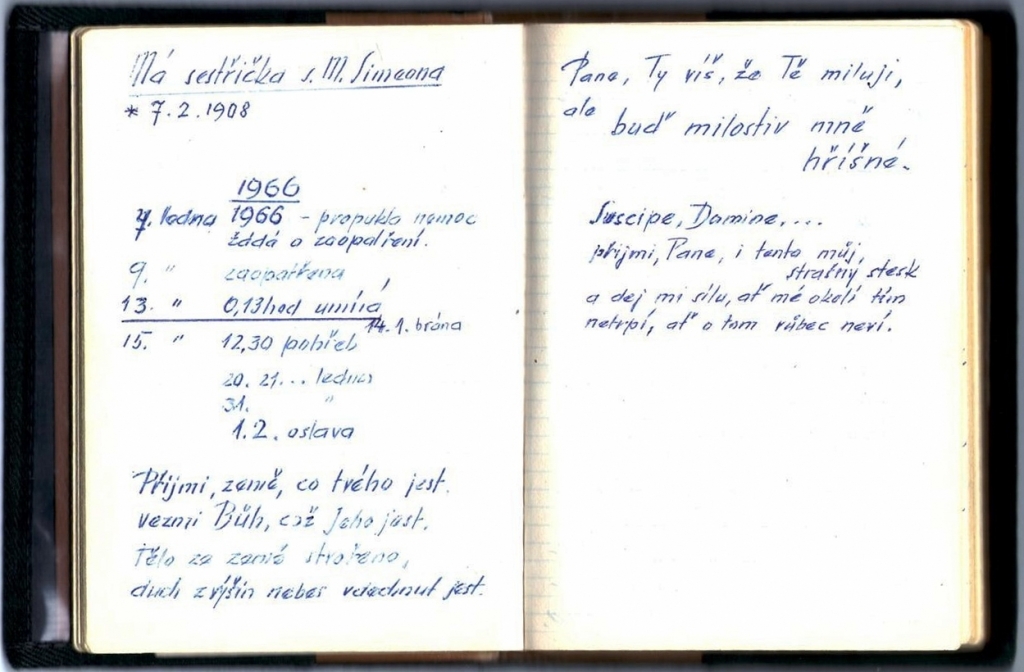 Má sestřička s. M. Simeona
* 7.2.1908
1966
7. ledna 1966 - propukla nemoc
žádá o zaopatření.
9. " zaopatřena
13. " 0,13 hod umírá,
14.1. brána
15. " 12,30 pohřeb
20. 21... ledna
31. "
1.2. oslava
Přijmi, země, co tvého jest.
vezmi Bůh, což Jeho jest.
Tělo ze země stvořeno,
duch z výšin nebes vdechnut jest.
Pane, Ty víš, že Tě miluji,
ale buď milostiv mně
hříšné.
Suscipe, Domine, ...
přijmi, Pane, i tento můj,
strašný stesk
a dej mi sílu, ať mé okolí tím
netrpí, ať o tom vůbec neví.